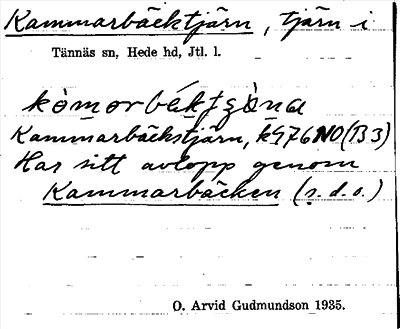 Kammarbäcktjärn, tjärn i
Tännäs sn, Hede hd, Jtl. l.
kòmorbéktʒὰna
Kammarbäckstjärn, k976NO(B3)
Har sitt avlopp genom
Kammarbäcken (s.d.o.)
O. Arvid Gudmundson 1935.